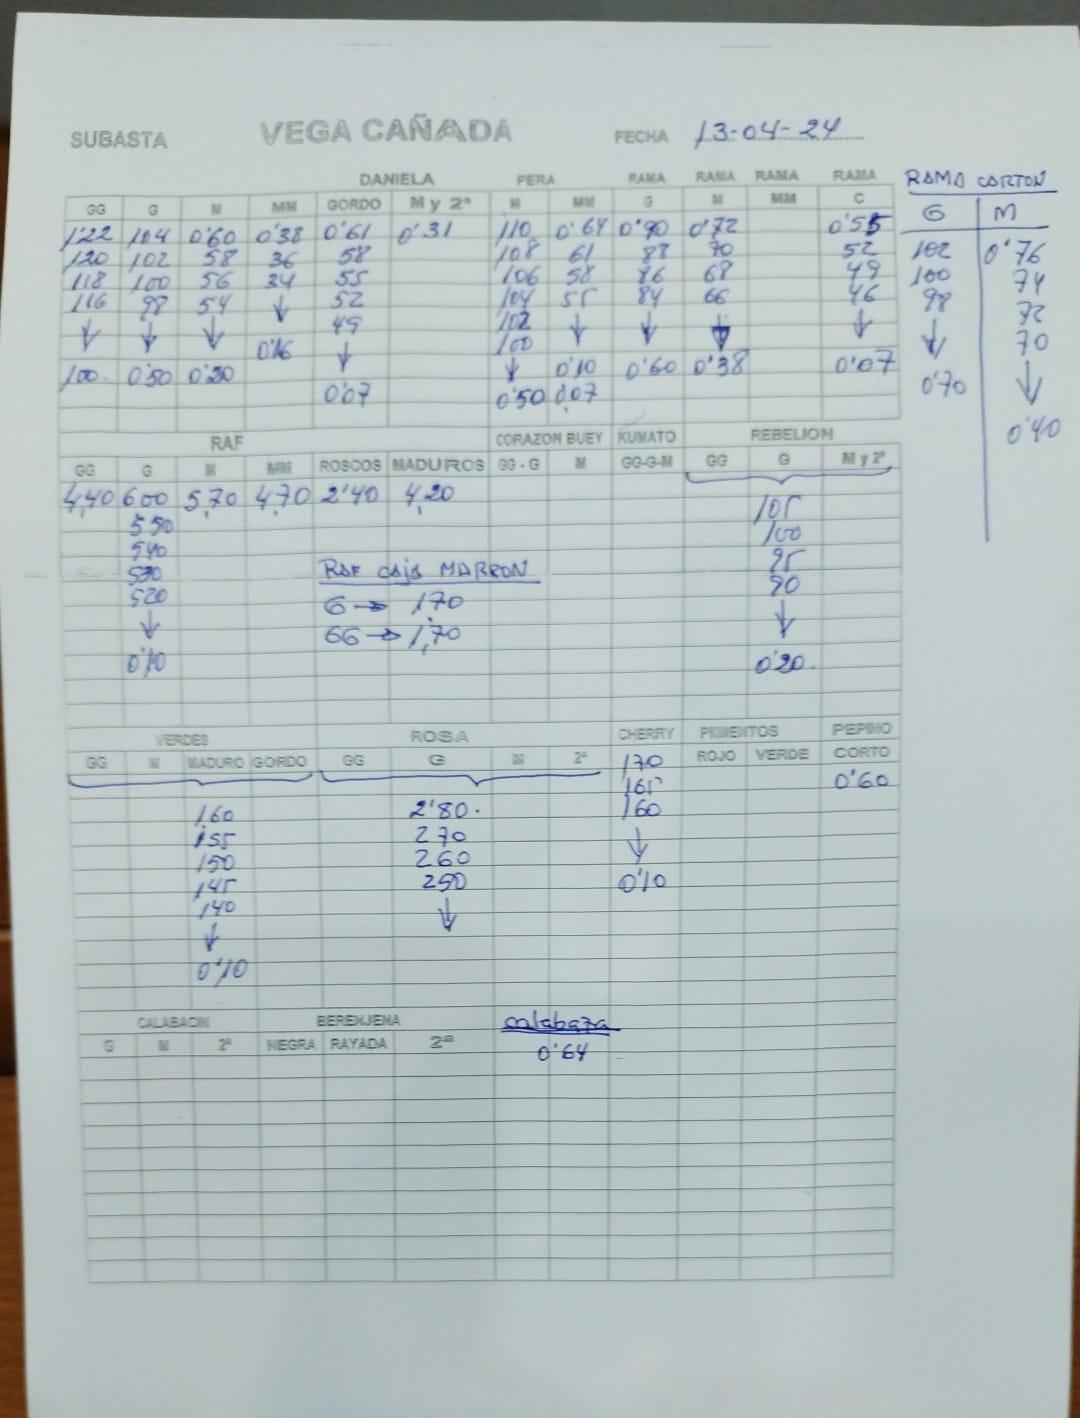 SUBASTA VEGA CAÑADA FECHA 13-04-24
DANIELA PERA RAMA RAMA RAMA RAMA RAMA CARTON
GG G M MM GORDO M y 2ª M MM G M MM C G M
1'22 104 0'60 0'38 0'61 0'31 110 0'64 0'90 0'72 0'55 102 0'76
120 102 58 36 58 108 61 88 70 52 100 74
118 100 56 34 55 106 58 86 68 49 98 72
116 98 54 ↓ 52 104 55 84 66 46 ↓ 70
↓ ↓ ↓ 0'16 49 102 ↓ ↓ ↓ ↓ 0'70 ↓
100 0'50 0'20 ↓ 100 0'10 0'60 0'38 0'07 0'40
0'07 ↓ 0'07
0'50
RAF CORAZON BUEY KUMATO REBELION
GG G M MM ROSCOS MADUROS GG - G M GG-G-M GG G M y 2ª
4,40 600 5,70 4,70 2'40 4,20 105
550 100
540 95
530 90
520 ↓
↓ 0'20
0'10
RAF caja MARRON
G → 1,70
GG → 1,70
VERDES ROSA CHERRY PIMIENTOS PEPINO
GG M MADURO GORDO GG G M 2ª ROJO VERDE CORTO
170 0'60
165
160 2'80 160
155 270 ↓
150 260 0'10
145 250
140 ↓
↓
0'10
CALABACIN BERENJENA calabaza
G M 2ª NEGRA RAYADA 2ª 0'64